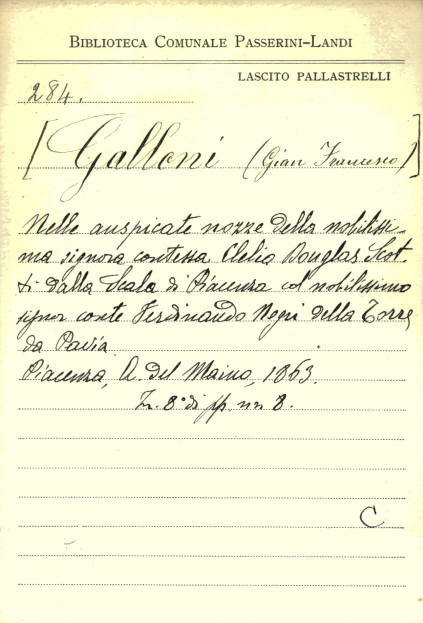 BIBLIOTECA COMUNALE PASSERINI-LANDI
LASCITO PALLASTRELLI
284.
[Galloni (Gian Francesco)]
Nelle auspicate nozze della nobilissi-
ma signora contessa Clelia Douglas Scot-
ti dalla Scala di Piacenza col nobilissimo
signor conte Ferdinando Negri della Torre
da Pavia.
Piacenza, A. del Maino, 1863.
In. 8° di pp. nn 8.
C